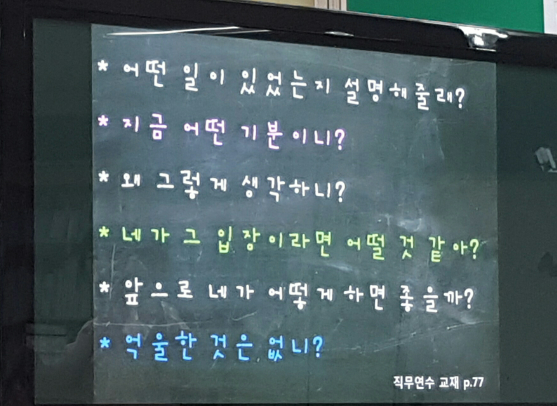 * 어떤 일이 있었는지 설명해줄래?
* 지금 어떤 기분이니?
* 왜 그렇게 생각하니?
* 네가 그 입장이라면 어떨 것 같아?
* 앞으로 네가 어떻게 하면 좋을까?
* 억울한 것은 없니?
직무연수 교재 p.77